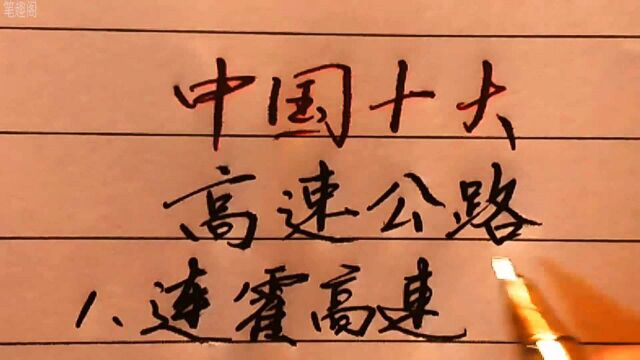 笔趣阁
中国十大
高速公路
1、连霍高速